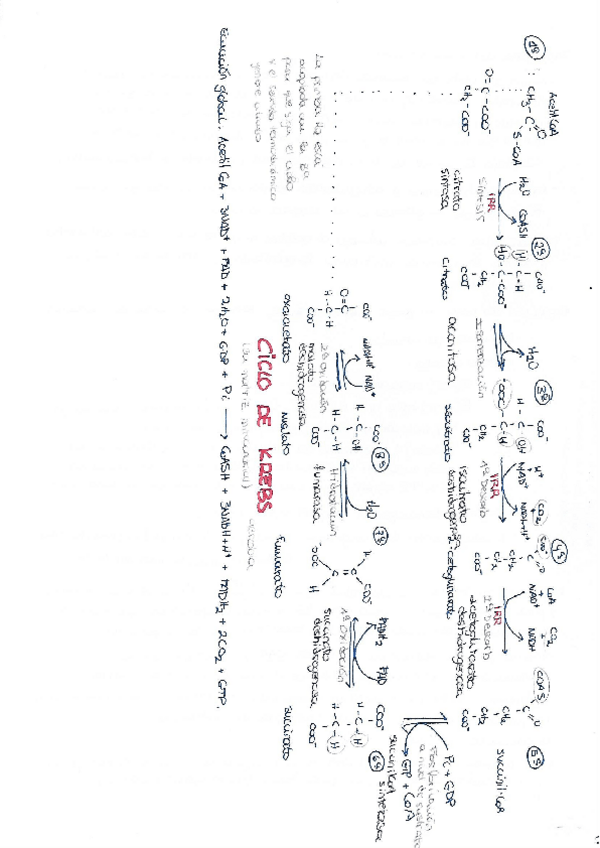 1ª
Acetil CoA
CH₃-C=O
S-CoA
O=C-COO⁻
CH₂-COO⁻
H₂O
COASH
IRR
SINTESIS
citrato
sintasa
2ª
COO⁻
H-C-H
HO-C-COO⁻
CH₂
COO⁻
citrato
H₂O
Isomerización
aconitasa
3ª
COO⁻
H-C-OH
COO-C-H
CH₂
COO⁻
isocitrato
NAD⁺
NADH+H⁺
CO₂
IRR
1ª Descarb
isocitrato
deshidrogenasa
4ª
COO⁻
C=O
CH₂
CH₂
COO⁻
α-cetoglutarato
CoA
+
NAD⁺
CO₂
+
NADH
IRR
2ª Descarb
α-cetoglutarato
deshidrogenasa
5ª
COAS
C=O
CH₂
CH₂
COO⁻
succinil-CoA
Pi + GDP
GTP + CoA
Fosforilación
a nivel de sustrato
succinilCoA
sintetasa
6ª
COO⁻
H-C-H
H-C-H
COO⁻
succinato
FAD
FADH₂
1ª Oxidación
succinato
deshidrogenasa
7ª
H
COO⁻
C
C
⁻OOC
H
fumarato
H₂O
Hidratación
fumarasa
8ª
COO⁻
H-C-OH
H-C-H
COO⁻
malato
NAD⁺
NADH+H⁺
2ª Oxidación
malato
deshidrogenasa
COO⁻
O=C
H-C-H
COO⁻
oxalacetato
La primera
para que siga el ciclo
CICLO DE KREBS
(en matriz mitocondrial)
Ecuación global: Acetil CoA + 3NAD⁺ + FAD + 2H₂O + GDP + Pi ⟶ CoASH + 3NADH+H⁺ + FADH₂ + 2CO₂ + GTP.